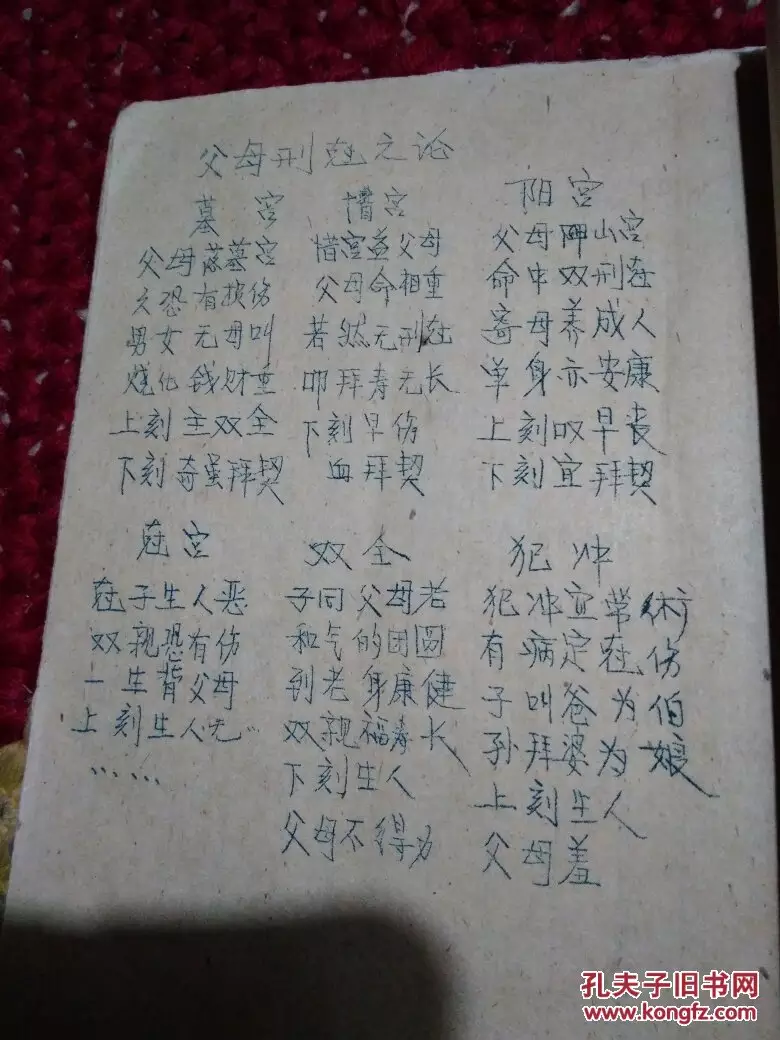 父母刑尅之论
墓宫
父母落墓宫
又恐有损伤
男女无母叫
烧化钱财重
上刻主双全
下刻奇蛋拜契
惜宫
惜宫益父母
父母命相重
若然无刑尅
叩拜寿元长
下刻早伤
血拜契
阳宫
父母山宫
命中双刑尅
寄母养成人
单身亦安康
上刻叹早丧
下刻宜拜契
尅宫
尅子生人恶
双亲恐有伤
一生背父母
上刻生人无
……
双全
子同父母若
和气的团圆
到老身康健
双亲福寿长
下刻生人
父母不得力
犯冲
犯冲宜带
有病定尅伤
子叫爸为伯
孙拜婆为娘
上刻生人
父母羞
孔夫子旧书网
www.kongfz.com